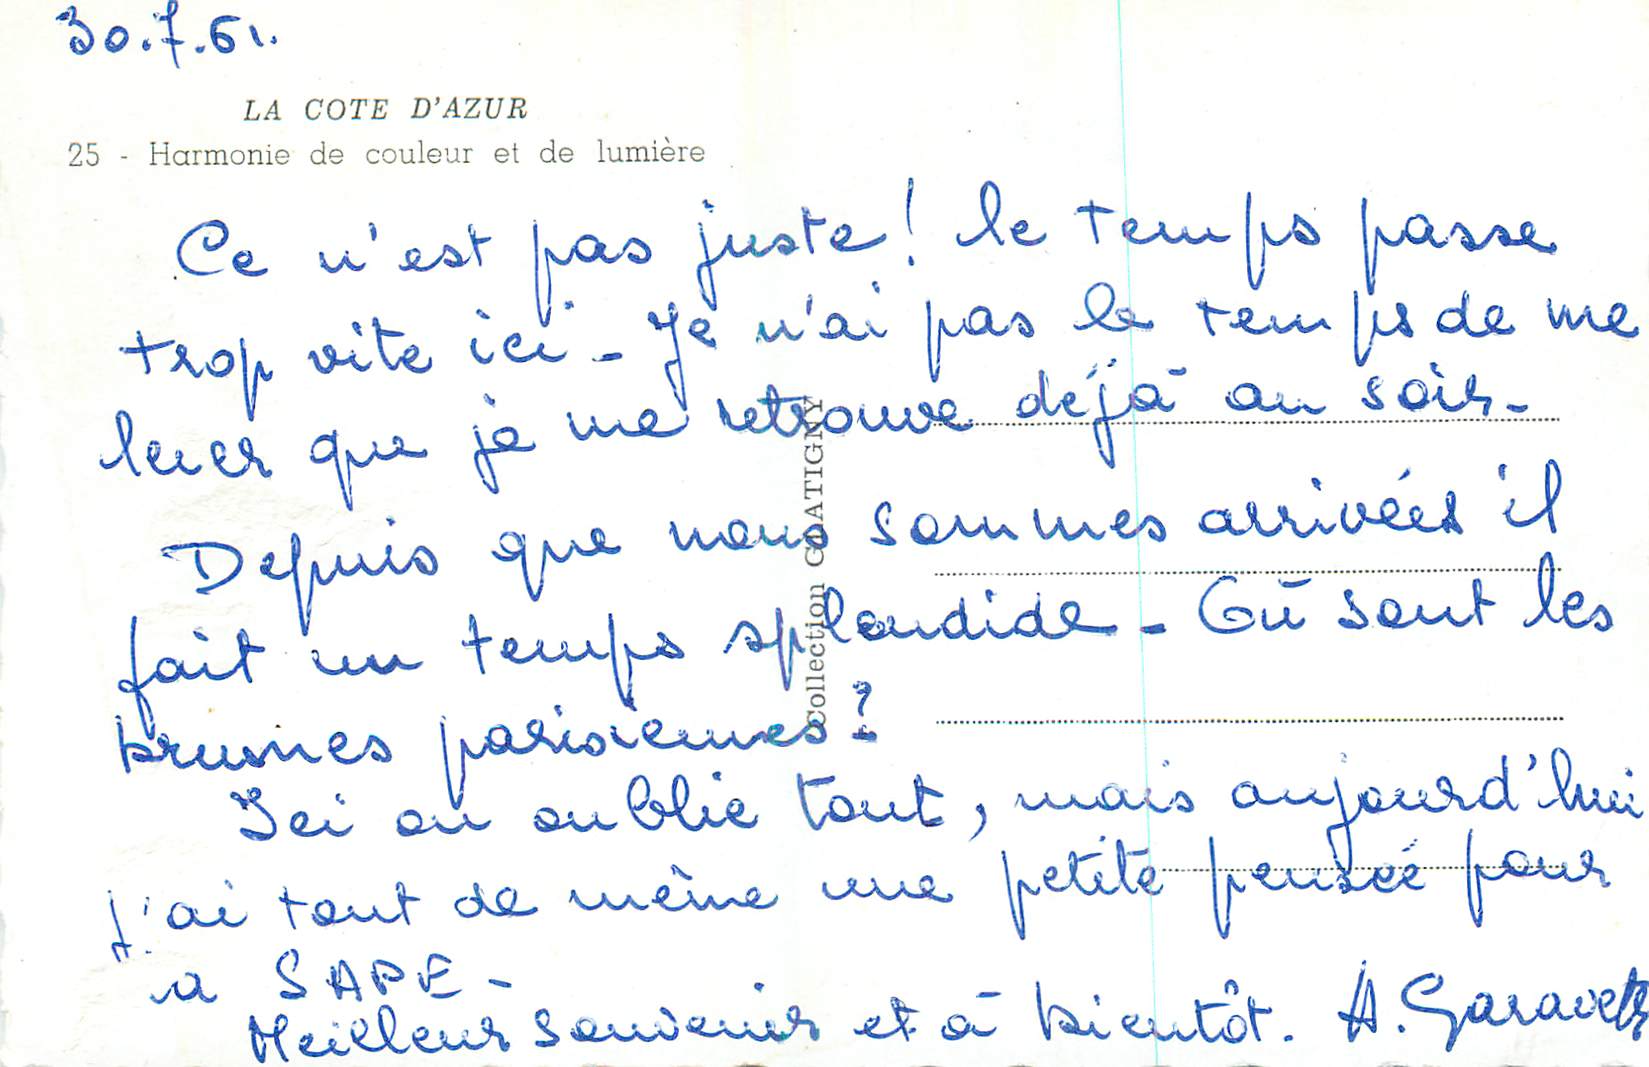 30.7.61.
LA COTE D'AZUR
25 - Harmonie de couleur et de lumière
Ce n'est pas juste! le temps passe
trop vite ici - Je n'ai pas le temps de me
lever que je me retrouve déjà au soir -
Depuis que nous sommes arrivées il
fait un temps splendide - Où sont les
brumes parisiennes?
Ici on oublie tout, mais aujourd'hui
j'ai tout de même une petite pensée pour
la SAPE -
Meilleur souvenir et à bientôt. A.
Collection GILATIGNY